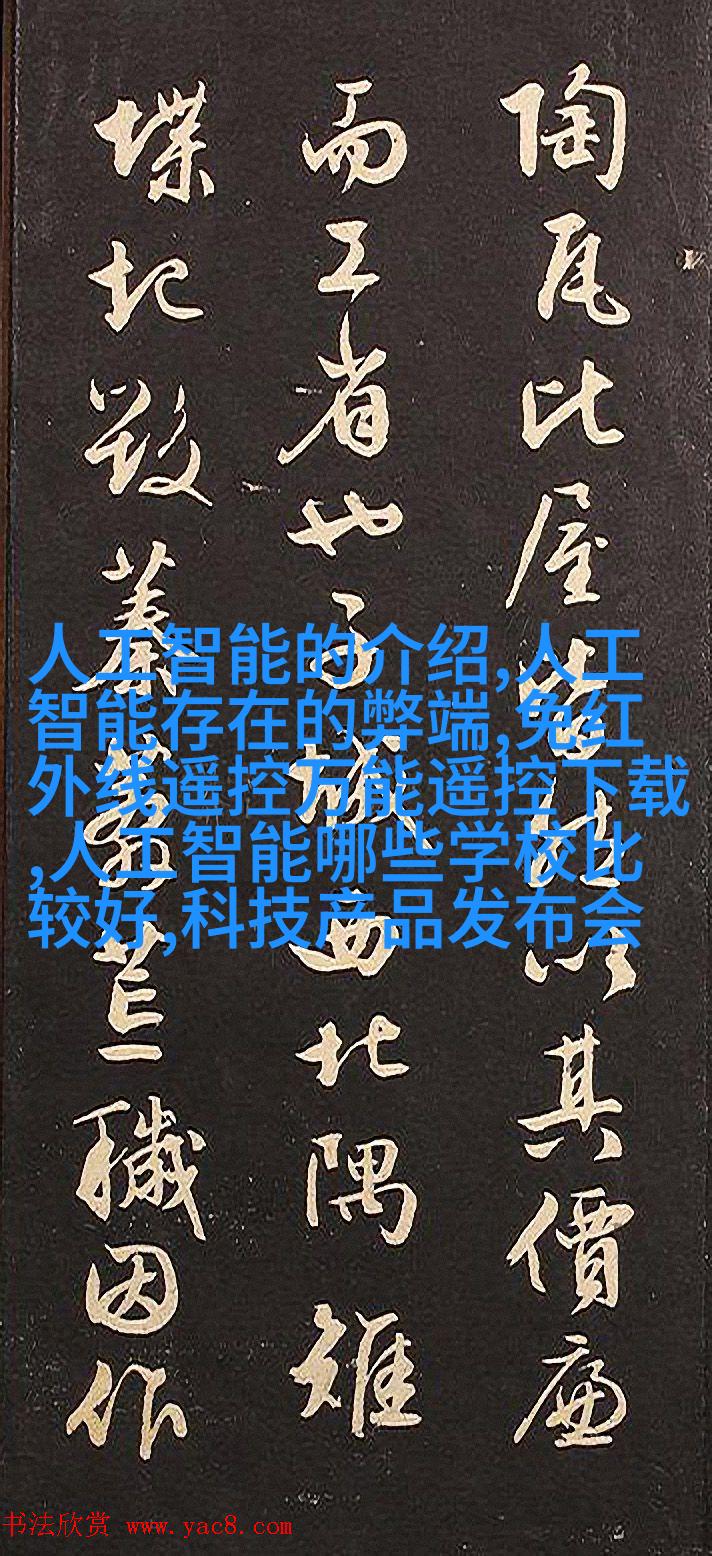 陶瓦比屋皆然以其價廉
而工省也子城西北隅雉
堞圮毀蓁莽荒穢因作
人工智能的介绍,人工
智能存在的弊端,免红
外线遥控万能遥控下载
,人工智能哪些学校比
较好,科技产品发布会
书法欣赏 www.yac8.com